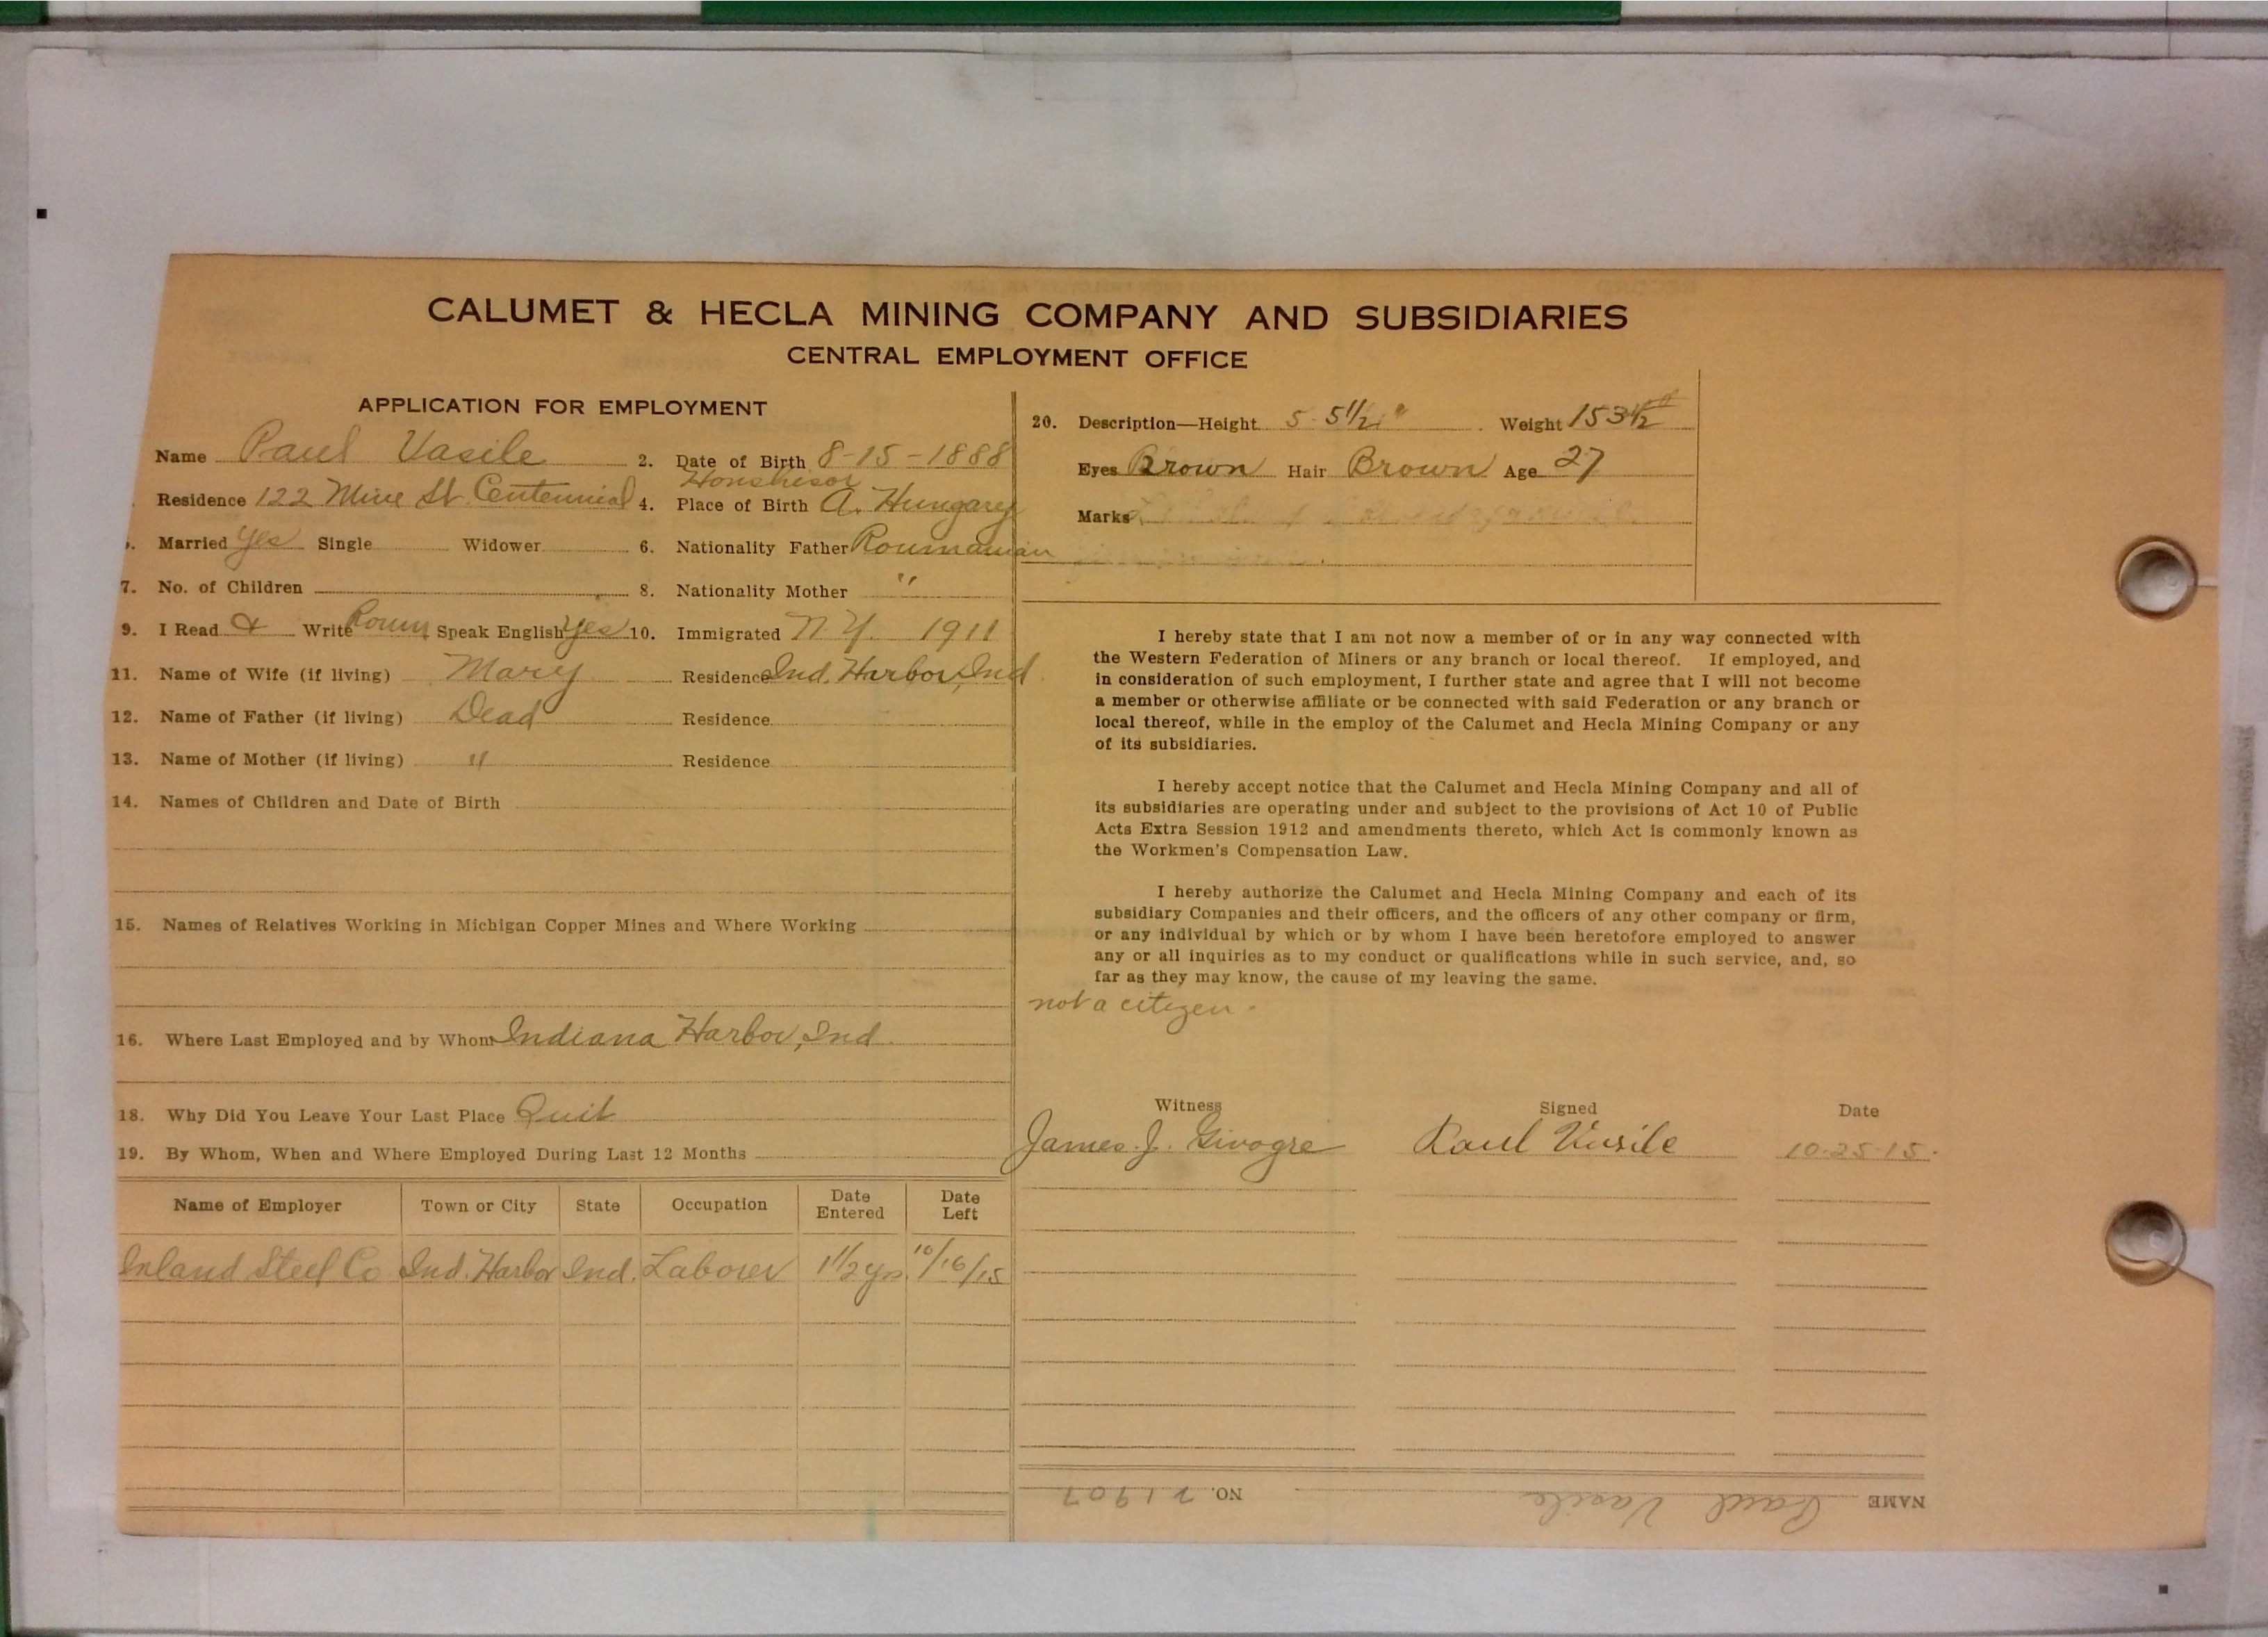 CALUMET & HECLA MINING COMPANY AND SUBSIDIARIES
CENTRAL EMPLOYMENT OFFICE
APPLICATION FOR EMPLOYMENT
Name Paul Vasile 2. Date of Birth 8-15-1888
Residence 122 Mine St. Centennial 4. Place of Birth A. Hungary
Married Yes Single Widower 6. Nationality Father Roumanian
7. No. of Children 8. Nationality Mother "
9. I Read & Write Roum Speak English Yes 10. Immigrated N.Y. 1911
11. Name of Wife (if living) Mary Residence Ind. Harbor, Ind.
12. Name of Father (if living) Dead Residence
13. Name of Mother (if living) " Residence
14. Names of Children and Date of Birth
15. Names of Relatives Working in Michigan Copper Mines and Where Working
16. Where Last Employed and by Whom Indiana Harbor, Ind.
18. Why Did You Leave Your Last Place Quit
19. By Whom, When and Where Employed During Last 12 Months
Name of Employer Town or City State Occupation Date Entered Date Left
Inland Steel Co Ind. Harbor Ind. Laborer 1 1/2 yrs. 10/16/15
20. Description—Height 5 5 1/2" Weight 153 1/2 #
Eyes Brown Hair Brown Age 27
Marks
I hereby state that I am not now a member of or in any way connected with
the Western Federation of Miners or any branch or local thereof. If employed, and
in consideration of such employment, I further state and agree that I will not become
a member or otherwise affiliate or be connected with said Federation or any branch or
local thereof, while in the employ of the Calumet and Hecla Mining Company or any
of its subsidiaries.
I hereby accept notice that the Calumet and Hecla Mining Company and all of
its subsidiaries are operating under and subject to the provisions of Act 10 of Public
Acts Extra Session 1912 and amendments thereto, which Act is commonly known as
the Workmen's Compensation Law.
I hereby authorize the Calumet and Hecla Mining Company and each of its
subsidiary Companies and their officers, and the officers of any other company or firm,
or any individual by which or by whom I have been heretofore employed to answer
any or all inquiries as to my conduct or qualifications while in such service, and, so
far as they may know, the cause of my leaving the same.
not a citizen.
Witness Signed Date
James J. Paul Vasile 10-25-15.
NAME Paul Vasile NO. 21907